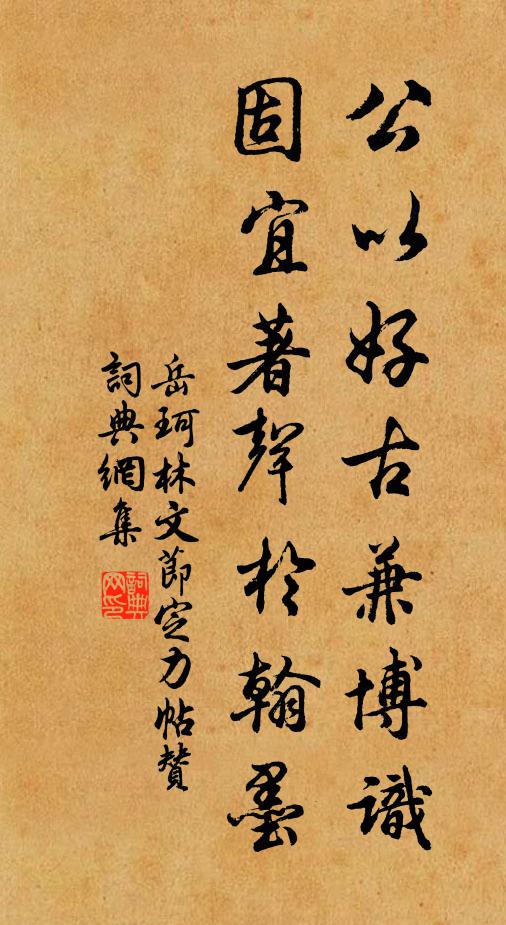 公以好古兼博識
固宜著聲於翰墨
岳珂林文節定力帖贊
詞典網集
詞典网印